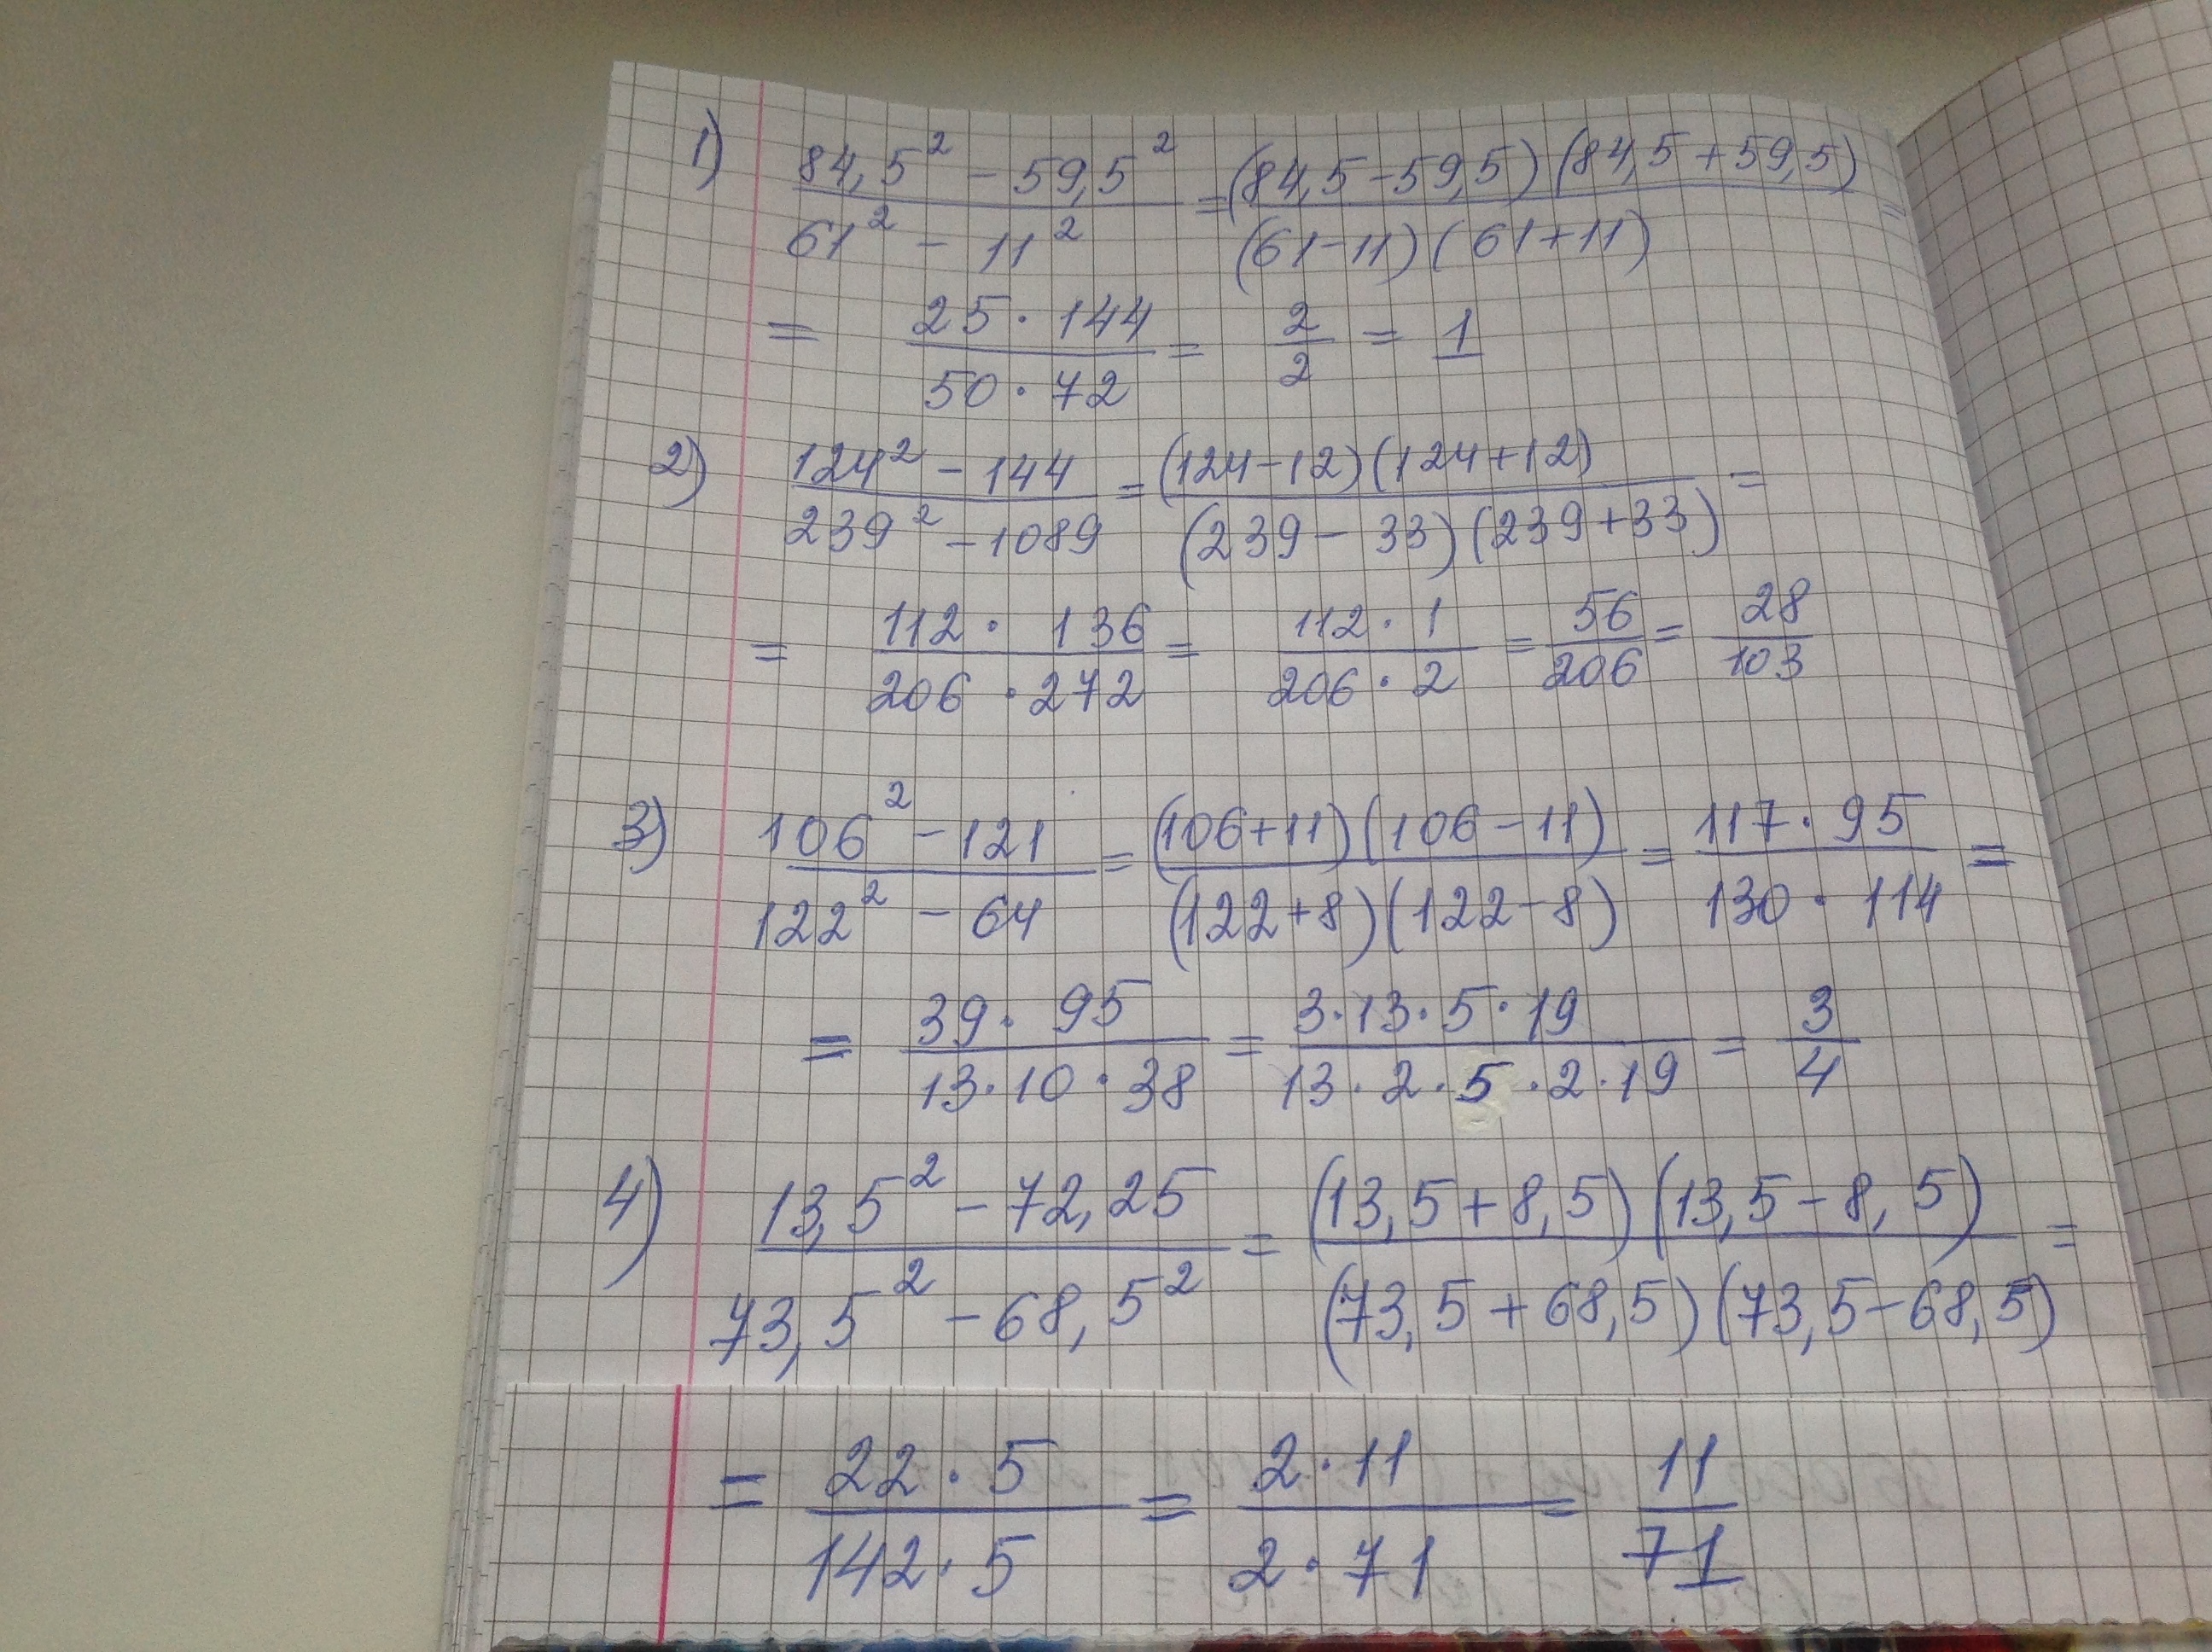 1) (84,5² - 59,5²)/(61² - 11²) = ((84,5-59,5)(84,5+59,5))/((61-11)(61+11)) =
= (25·144)/(50·72) = 2/2 = 1
2) (124² - 144)/(239² - 1089) = ((124-12)(124+12))/((239-33)(239+33)) =
= (112·136)/(206·272) = (112·1)/(206·2) = 56/206 = 28/103
3) (106² - 121)/(122² - 64) = ((106+11)(106-11))/((122+8)(122-8)) = (117·95)/(130·114) =
= (39·95)/(13·10·38) = (3·13·5·19)/(13·2·5·2·19) = 3/4
4) (13,5² - 72,25)/(73,5² - 68,5²) = ((13,5+8,5)(13,5-8,5))/((73,5+68,5)(73,5-68,5)) =
= (22·5)/(142·5) = (2·11)/(2·71) = 11/71